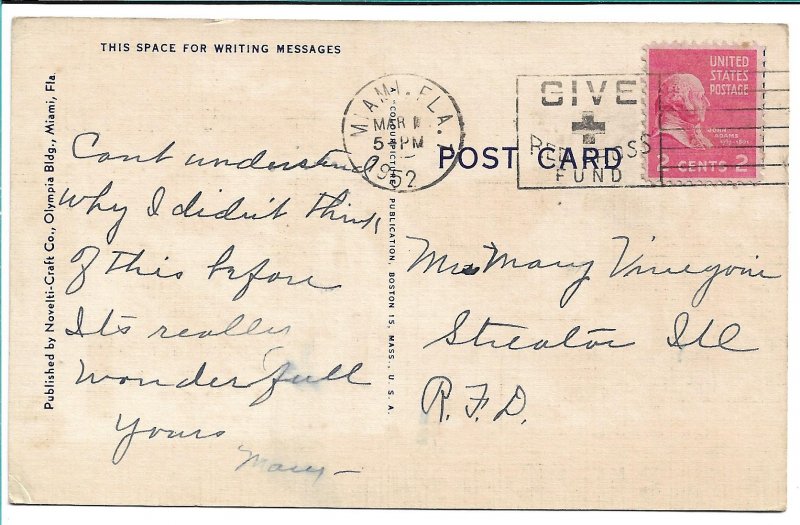 THIS SPACE FOR WRITING MESSAGES
Published by Novelti-Craft Co., Olympia Bldg., Miami, Fla.
Cant understand
why I didn't think
of this before
It's really
wonderfull
Yours
Mary
MIAMI, FLA.
MAR 1
5 PM
1952
GIVE
RED CROSS
FUND
UNITED
STATES
POSTAGE
JOHN
ADAMS
2 CENTS 2
POST CARD
PUBLICATION, BOSTON 15, MASS., U. S. A.
Mary
Streator Ill
R.F.D.